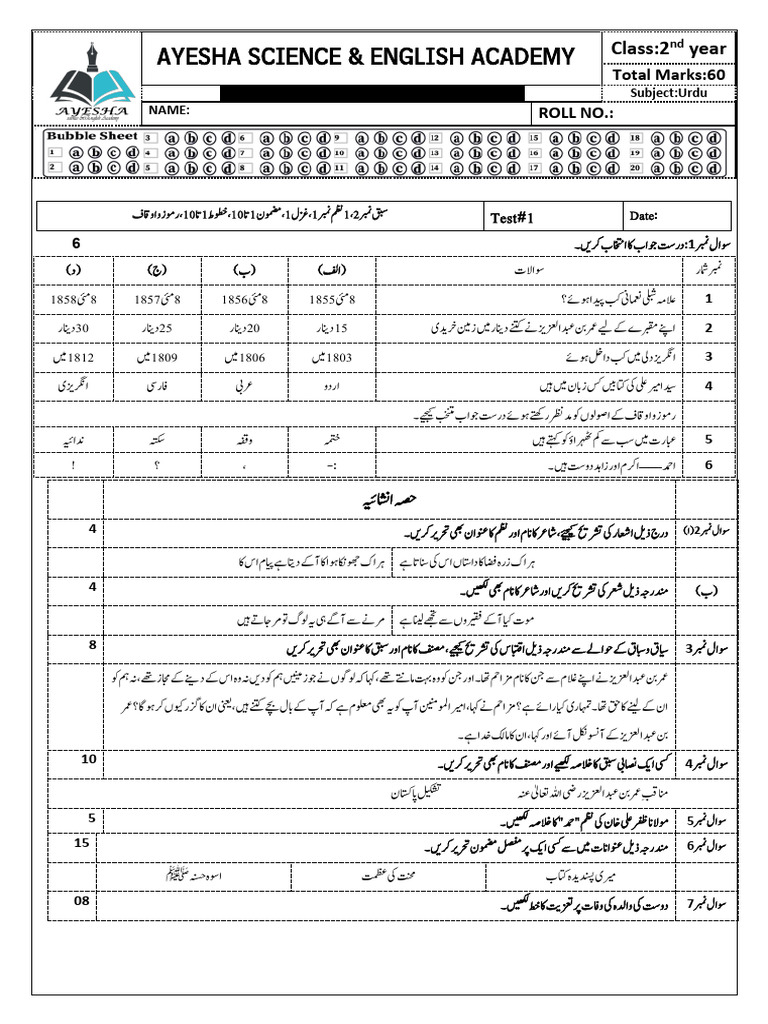 AYESHA SCIENCE & ENGLISH ACADEMY
Class:2nd year
Total Marks:60
Subject:Urdu
AYESHA
NAME:
ROLL NO.:
Bubble Sheet
1 a b c d
2 a b c d
3 a b c d
4 a b c d
5 a b c d
6 a b c d
7 a b c d
8 a b c d
9 a b c d
10 a b c d
11 a b c d
12 a b c d
13 a b c d
14 a b c d
15 a b c d
16 a b c d
17 a b c d
18 a b c d
19 a b c d
20 a b c d
سبق نمبر2،1 نظم نمبر1،غزل1،مضمون1تا10،خطوط1تا10،رموز و اوقاف
Test#1
Date:
سوال نمبر1:درست جواب کا انتخاب کریں۔ 6
نمبر شمار سوالات (الف) (ب) (ج) (د)
1 علامہ شبلی نعمانی کب پیدا ہوئے؟ 8مئی1855 8مئی1856 8مئی1857 8مئی1858
2 اپنے مقبرے کے لیے عمر بن عبدالعزیز نے کتنے دینار میں زمین خریدی 15دینار 20دینار 25دینار 30دینار
3 انگریز دلی میں کب داخل ہوئے 1803میں 1806میں 1809میں 1812میں
4 سید امیر علی کی کتابیں کس زبان میں ہیں اردو عربی فارسی انگریزی
رموز و اوقاف کے اصولوں کو مد نظر رکھتے ہوئے درست جواب منتخب کیجیے۔
5 عبارت میں سب سے کم ٹھہراؤ کو کہتے ہیں ختمہ وقفہ سکتہ ندائیہ
6 احمد——اکرم اور زاہد دوست ہیں۔ :- ، ؟ !
حصہ انشائیہ
سوال نمبر2(i) درج ذیل اشعار کی تشریح کیجیے،شاعر کا نام اور نظم کا عنوان بھی تحریر کریں۔ 4
ہر اک ذرہ فضا کا داستاں اس کی سناتا ہے ہر اک جھونکا ہوا کا آکے دیتا ہے پیام اس کا
(ب) مندرجہ ذیل شعر کی تشریح کریں اور شاعر کا نام بھی لکھیں۔ 4
موت کیا آکے فقیروں سے تجھے لینا ہے مرنے سے آگے ہی یہ لوگ تو مر جاتے ہیں
سوال نمبر3 سیاق و سباق کے حوالے سے مندرجہ ذیل اقتباس کی تشریح کیجیے،مصنف کا نام اور سبق کا عنوان بھی تحریر کریں 8
عمر بن عبدالعزیز نے اپنے غلام سے جن کا نام مزاحم تھا۔اور جن کو وہ بہت مانتے تھے،کہا کہ لوگوں نے جو زمینیں ہم کو دیں نہ وہ اس کے دینے کے مجاز تھے،نہ ہم کو
ان کے لینے کا حق تھا۔تمہاری کیا رائے ہے؟مزاحم نے کہا،امیر المومنین آپ کو یہ بھی معلوم ہے کہ آپ کے بال بچے کتنے ہیں،یعنی ان کا گزر کیوں کر ہو گا؟عمر
بن عبدالعزیز کے آنسو نکل آئے اور کہا،ان کا مالک خدا ہے۔
سوال نمبر4 کسی ایک نصابی سبق کا خلاصہ لکھیے اور مصنف کا نام بھی تحریر کریں۔ 10
مناقبِ عمر بن عبدالعزیز رضی اللہ تعالیٰ عنہ تشکیل پاکستان
سوال نمبر5 مولانا ظفر علی خان کی نظم "حمد"کا خلاصہ لکھیں۔ 5
سوال نمبر6 مندرجہ ذیل عنوانات میں سے کسی ایک پر مفصل مضمون تحریر کریں۔ 15
میری پسندیدہ کتاب محنت کی عظمت اسوہ حسنہ ﷺ
سوال نمبر7 دوست کی والدہ کی وفات پر تعزیت کا خط لکھیں۔ 08